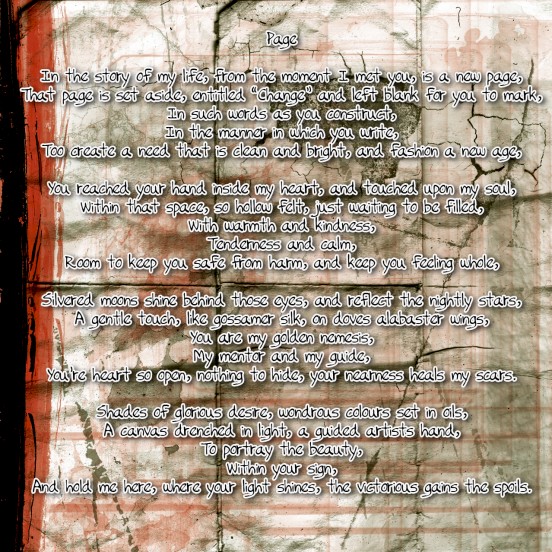 Page
In the story of my life, from the moment I met you, is a new page,
That page is set aside, entitled "Change" and left blank for you to mark,
In such words as you construct,
In the manner in which you write,
Too create a need that is clean and bright, and fashion a new age,
You reached your hand inside my heart, and touched upon my soul,
Within that space, so hollow felt, just waiting to be filled,
With warmth and kindness,
Tenderness and calm,
Room to keep you safe from harm, and keep you feeling whole,
Silvered moons shine behind those eyes, and reflect the nightly stars,
A gentle touch, like gossamer silk, on doves alabaster wings,
You are my golden nemesis,
My mentor and my guide,
You're heart so open, nothing to hide, your nearness heals my scars.
Shades of glorious desire, wondrous colours set in oils,
A canvas drenched in light, a guided artists hand,
To portray the beauty,
Within your sign,
And hold me here, where your light shines, the victorious gains the spoils.